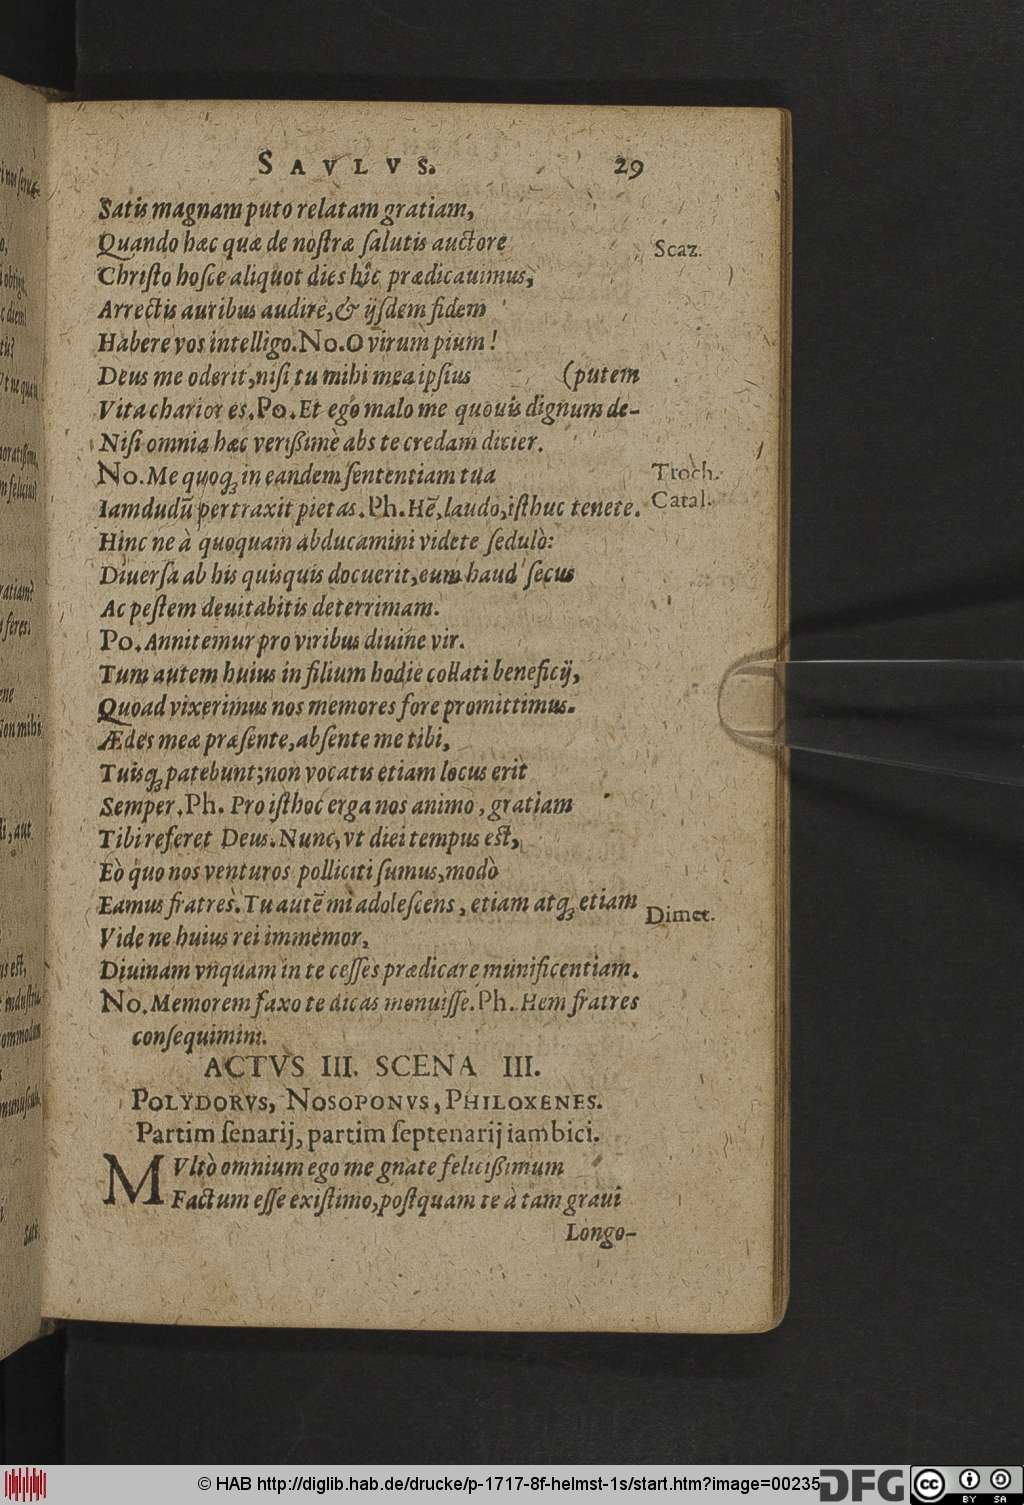 SAVLVS. 29
Satis magnam puto relatam gratiam,
Quando hæc quæ de nostræ salutis auctore
Scaz.
Christo hosce aliquot dies hîc prædicauimus,
Arrectis auribus audire, & ijsdem fidem
Habere vos intelligo. No. O virum pium!
Deus me oderit, nisi tu mihi mea ipsius (putem
Vita charior es. Po. Et ego malo me quouis dignum de-
Nisi omnia hæc verißimè abs te credam dicier.
No. Me quoqꝫ in eandem sententiam tua
Troch.
Iamdudū pertraxit pietas. Ph. Hē, laudo, isthuc tenete.
Catal.
Hinc ne à quoquam abducamini videte sedulò:
Diuersa ab his quisquis docuerit, eum haud secus
Ac pestem deuitabitis deterrimam.
Po. Annitemur pro viribus diuine vir.
Tum autem huius in filium hodie collati beneficij,
Quoad vixerimus nos memores fore promittimus.
Ædes meæ præsente, absente me tibi,
Tuisqꝫ patebunt; non vocatis etiam locus erit
Semper. Ph. Pro isthoc erga nos animo, gratiam
Tibi referet Deus. Nunc, vt diei tempus est,
Eò quo nos venturos polliciti sumus, modò
Eamus fratres. Tu autē mi adolescens, etiam atqꝫ etiam
Dimet.
Vide ne huius rei immemor,
Diuinam vnquam in te cesses prædicare munificentiam.
No. Memorem faxo te dicas monuisse. Ph. Hem fratres
consequimini.
ACTVS III. SCENA III.
POLYDORVS, NOSOPONVS, PHILOXENES.
Partim senarij, partim septenarij iambici.
MVltò omnium ego me gnate felicißimum
Factum esse existimo, postquam te à tam graui
Longo-
© HAB http://diglib.hab.de/drucke/p-1717-8f-helmst-1s/start.htm?image=00235
DFG
cc BY SA